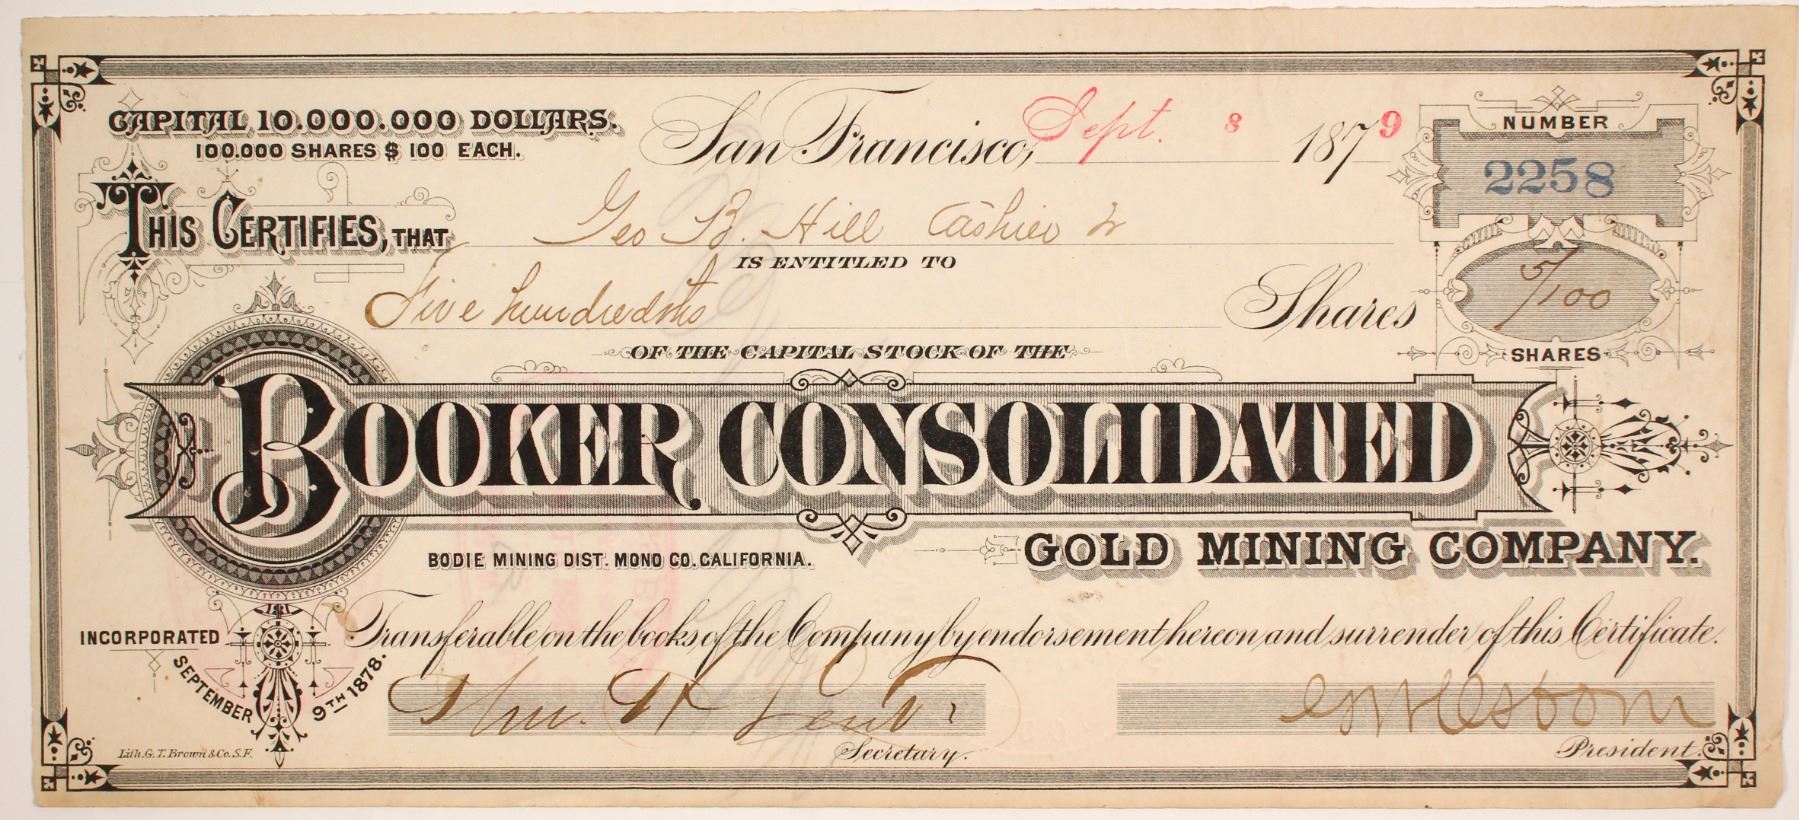 CAPITAL 10.000.000 DOLLARS.
100.000 SHARES $ 100 EACH.
San Francisco, Sept. 8 1879
NUMBER
2258
THIS CERTIFIES, THAT Geo B. Hill Cashier
IS ENTITLED TO
Five hundredths Shares
5/100
SHARES
OF THE CAPITAL STOCK OF THE
BOOKER CONSOLIDATED
GOLD MINING COMPANY.
BODIE MINING DIST. MONO CO. CALIFORNIA.
INCORPORATED
SEPTEMBER 9TH 1878.
Transferable on the books of the Company by endorsement hereon and surrender of this Certificate.
Secretary.
President.
Lith. G. T. Brown & Co. S. F.